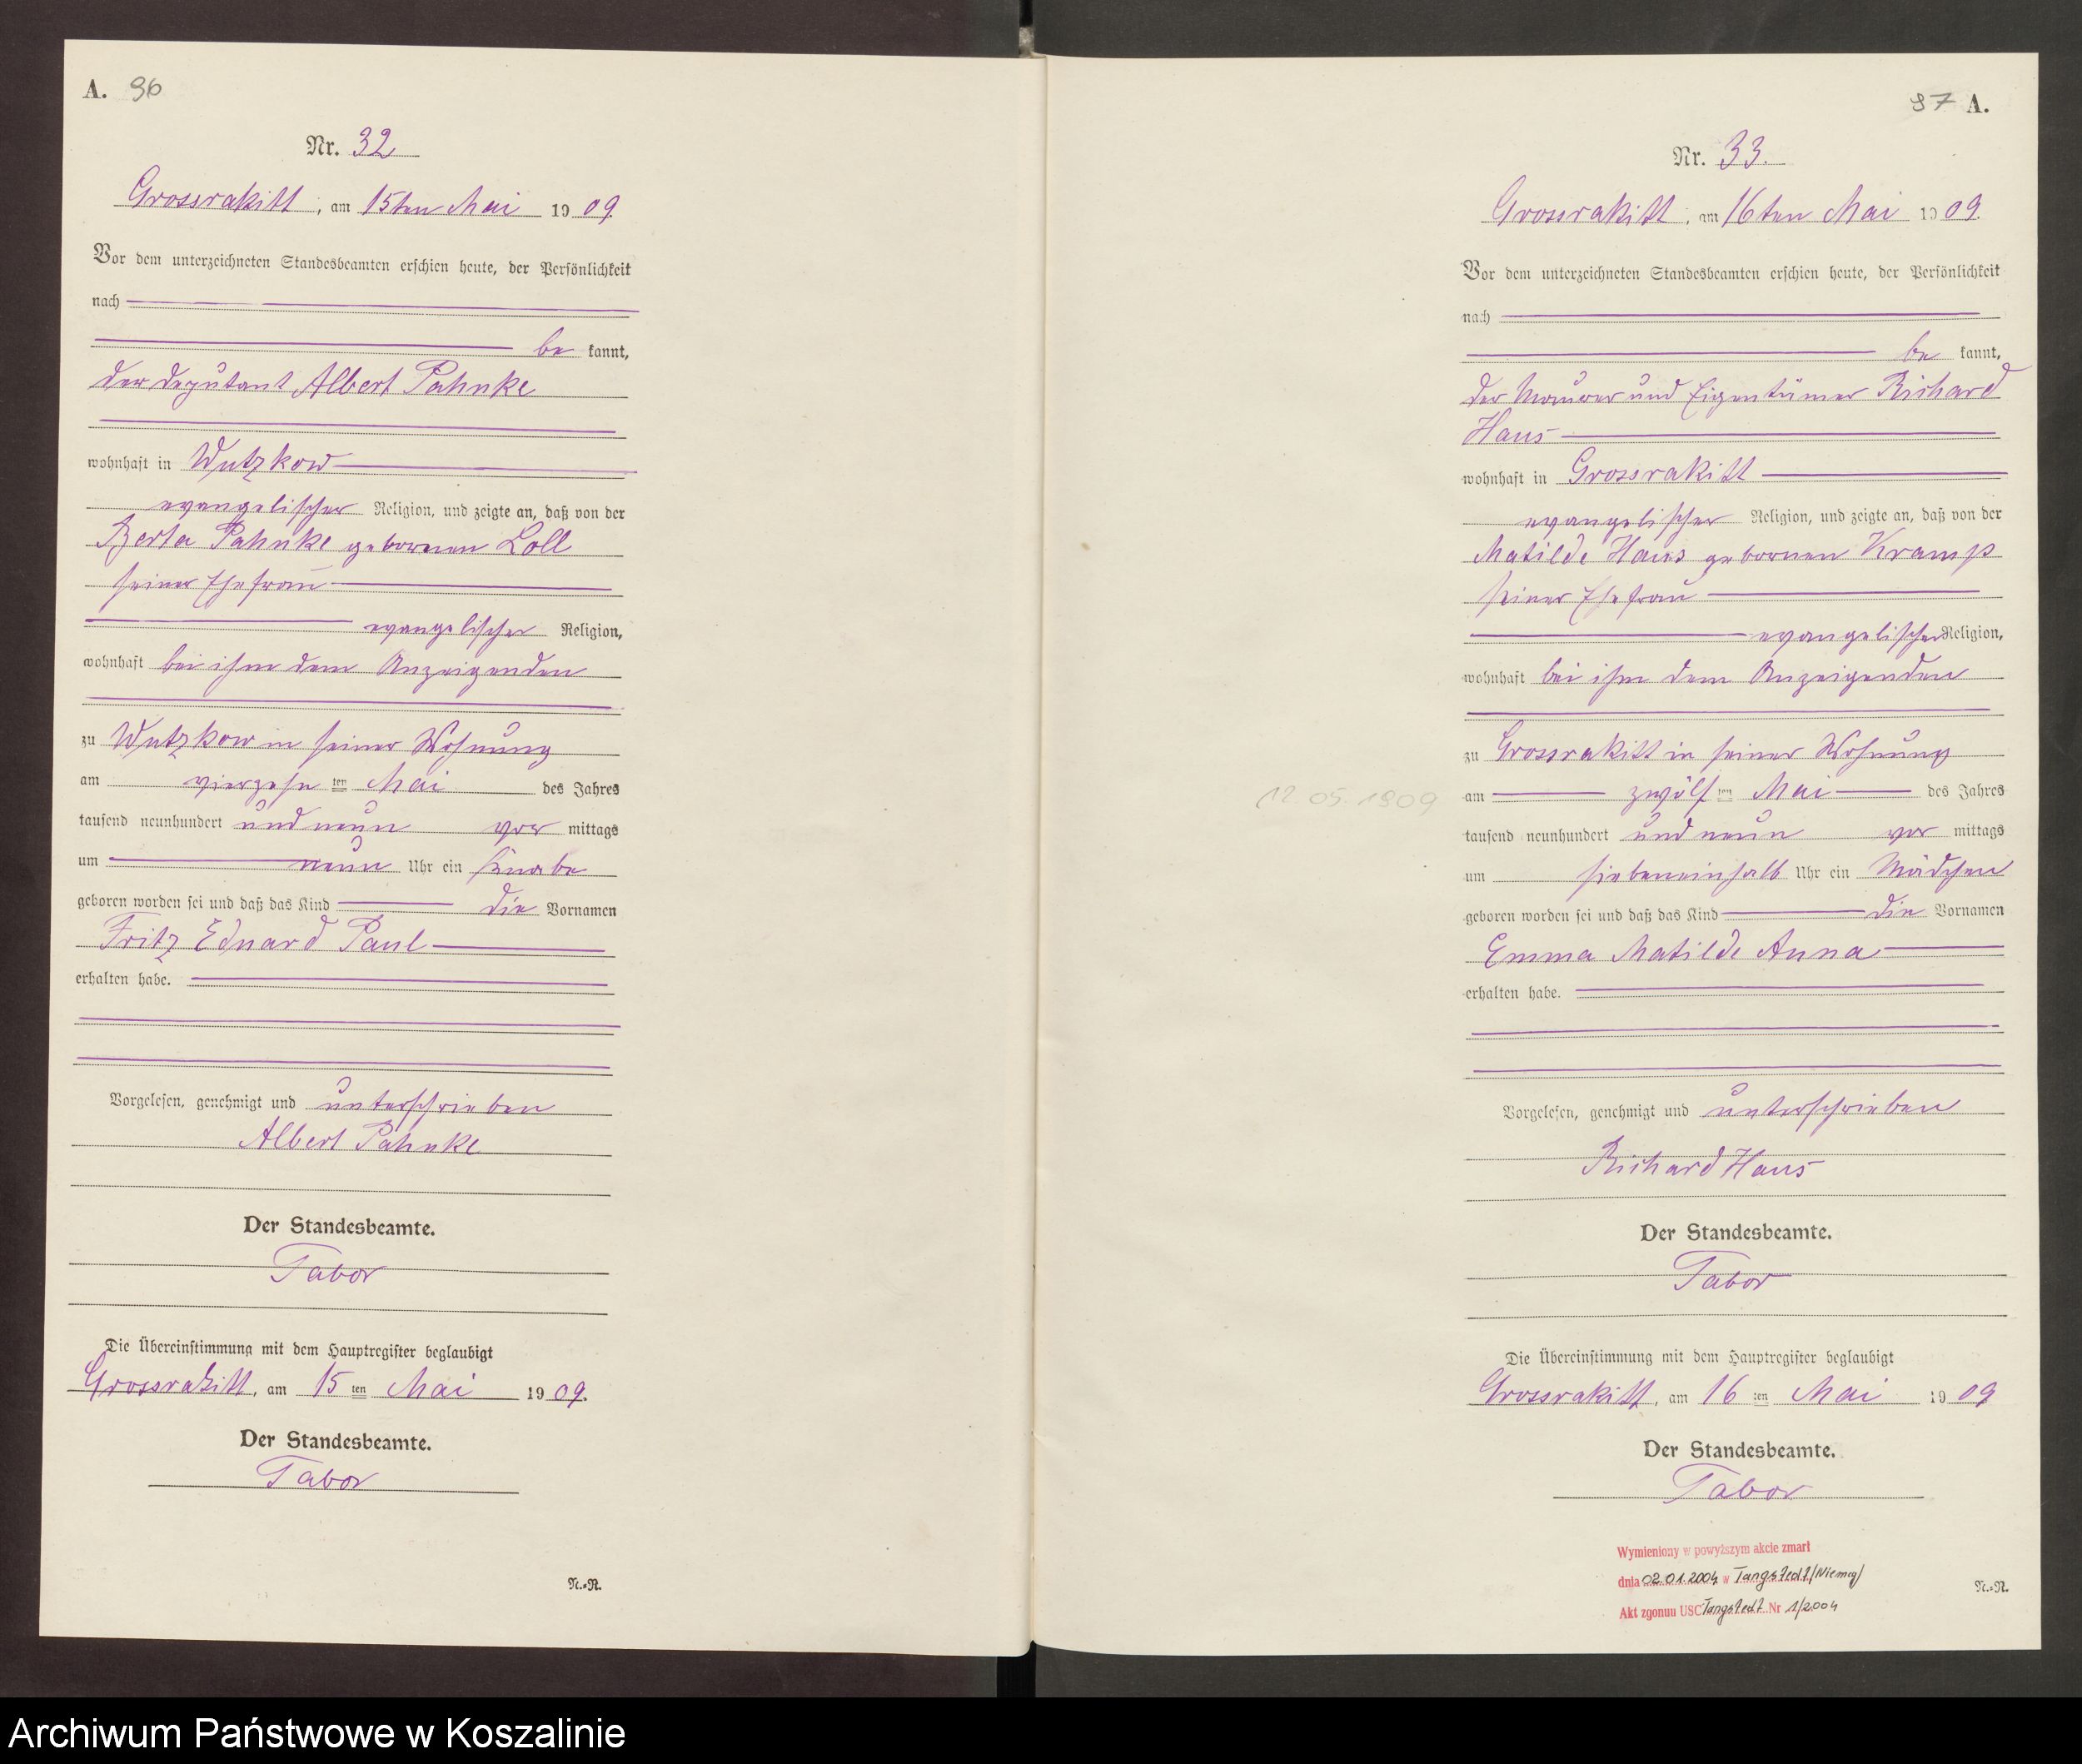 A. 96
Nr. 32
Grossrakitt, am 15ten Mai 1909.
Vor dem unterzeichneten Standesbeamten erschien heute, der Persönlichkeit
nach
be kannt,
der Deputant Albert Pahnke
wohnhaft in Wutzkow
evangelischer Religion, und zeigte an, daß von der
Berta Pahnke geborenen Loll
seiner Ehefrau
evangelischer Religion,
wohnhaft bei ihm dem Anzeigenden
zu Wutzkow in seiner Wohnung
am vierzehn ten Mai des Jahres
tausend neunhundert und neun vor mittags
um neun Uhr ein Knabe
geboren worden sei und daß das Kind die Vornamen
Fritz Eduard Paul
erhalten habe.
Vorgelesen, genehmigt und unterschrieben
Albert Pahnke
Der Standesbeamte.
Tabor
Die Übereinstimmung mit dem Hauptregister beglaubigt
Grossrakitt, am 15 ten Mai 1909.
Der Standesbeamte.
Tabor
N.=R.
97 A.
Nr. 33.
Grossrakitt, am 16ten Mai 1909.
Vor dem unterzeichneten Standesbeamten erschien heute, der Persönlichkeit
nach
be kannt,
der Maurer und Eigentümer Richard
Haus
wohnhaft in Grossrakitt
evangelischer Religion, und zeigte an, daß von der
Matilde Haus geborenen Kramp
seiner Ehefrau
evangelischer Religion,
wohnhaft bei ihm dem Anzeigenden
zu Grossrakitt in seiner Wohnung
12.05.1909
am zwölf ten Mai des Jahres
tausend neunhundert und neun vor mittags
um siebeneinhalb Uhr ein Mädchen
geboren worden sei und daß das Kind die Vornamen
Emma Matilde Anna
erhalten habe.
Vorgelesen, genehmigt und unterschrieben
Richard Haus
Der Standesbeamte.
Tabor
Die Übereinstimmung mit dem Hauptregister beglaubigt
Grossrakitt, am 16 ten Mai 1909
Der Standesbeamte.
Tabor
Wymieniony w powyższym akcie zmarł
dnia 02.01.2004 w Tangstedt/Niemcy/
Akt zgonuu USC Tangstedt Nr 1/2004
N.=R.
Archiwum Państwowe w Koszalinie